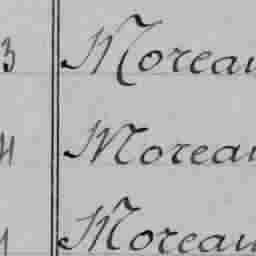 3 Moreau
4 Moreau
Moreau